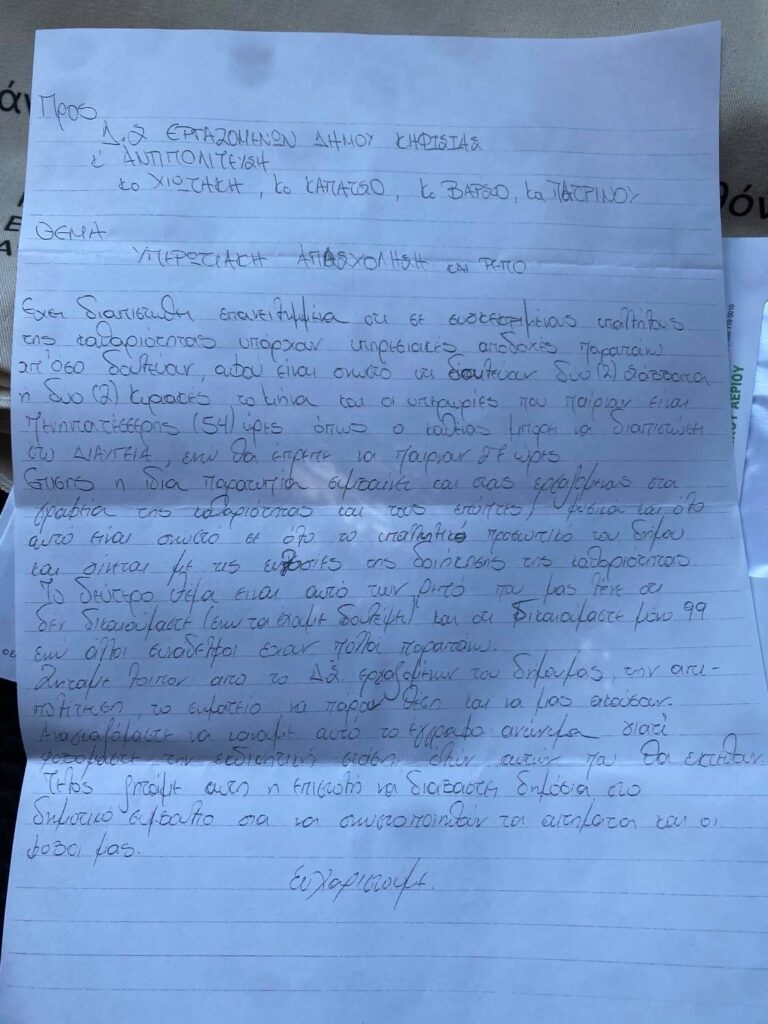 Προς
Δ.Σ ΕΡΓΑΖΟΜΕΝΩΝ ΔΗΜΟΥ ΚΗΦΙΣΙΑΣ
κ ΑΝΤΙΠΟΛΙΤΕΥΣΗ
κο ΧΙΩΤΑΚΗ, κο ΚΑΠΑΤΣΟ, κο ΒΑΡΣΟ, κα ΠΑΤΡΙΝΟΥ
ΘΕΜΑ
ΥΠΕΡΩΤΙΑΚΗ ΑΠΑΣΧΟΛΗΣΗ και ΡΕΠΟ
Εχει διαπιστωθει επανειλημμένα οτι σε συγκεκριμένους υπαλλήλους
της καθαριότητας υπάρχουν υπηρεσιακές αποδοχές παραπάνω
απ' όσο δουλεύουν, αφου είναι γνωστό οτι δουλεύουν δύο (2) Σάββατα
η δυο (2) Κυριακές το μήνα και οι υπερωρίες που παίρνουν είναι
πενηντατέσσερης (54) ώρες όπως ο καθένας μπορεί να διαπιστώσει
στο ΔΙΑΥΓΕΙΑ, ενω θα έπρεπε να παίρνουν 27 ώρες
Επισης η ίδια παρατυπία συμβαίνει και στους εργαζόμενους στα
γραφεία της καθαριότητας και τους επόπτες, φυσικά και όλο
αυτο είναι γνωστό σε όλο το υπαλληλικό προσωπικό του δήμου
και γίνεται με τις ευλογίες της διοίκησης της καθαριότητας.
Το δεύτερο θέμα ειναι αυτό των ρεπό που μας λένε οτι
δεν δικαιούμαστε (ενω τα έχουμε δουλέψει) και οτι δικαιούμαστε μόνο 99
ενω άλλοι συνάδελφοι εχουν πολλά παραπάνω.
Ζητάμε λοιπον απο το ΔΣ εργαζομένων του δημου μας, την αντι-
πολίτευση, το σωματείο να πάρουν θέση και να μας ακούσουν.
Αναγκαζόμαστε να κάνουμε αυτό το έγγραφο ανώνυμα γιατί
φοβόμαστε την εκδικητική στάση όλων αυτών που θα εκτεθουν
Τέλος ζητάμε αυτη η επιστολή να διαβαστεί δημόσια στο
δημοτικό συμβούλιο για να γνωστοποιηθούν τα αιτηματα και οι
φόβοι μας.
Ευχαριστουμε.
ΑΕΡΙΟΥ